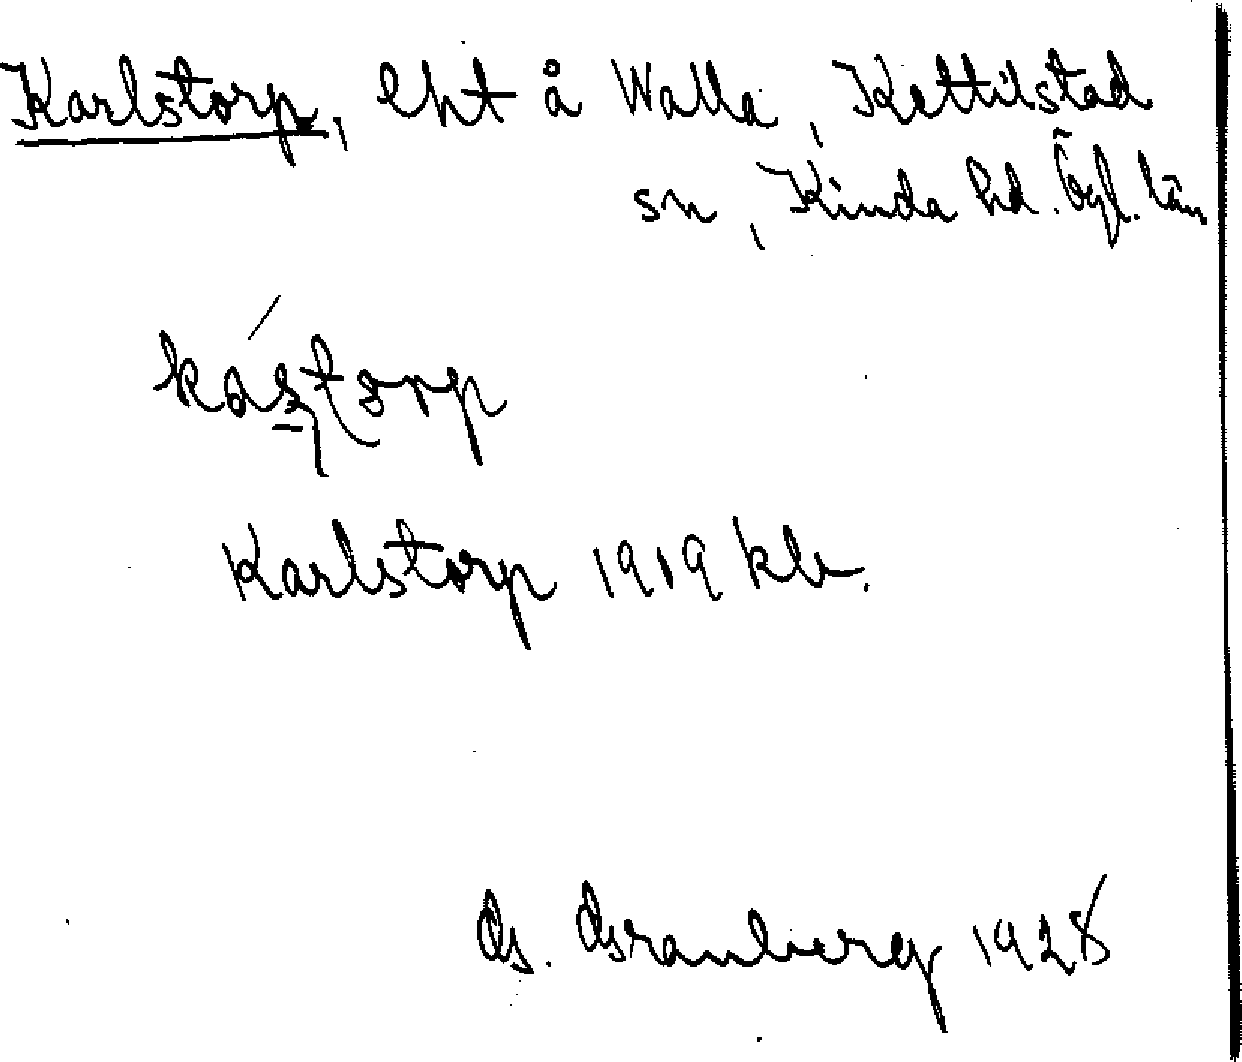 Karlstorp, lht å Walla, Kettilstad
sn, Kinda hd. Ögl. län
Karlstorp 1919 klr.
G. Granberg 1928